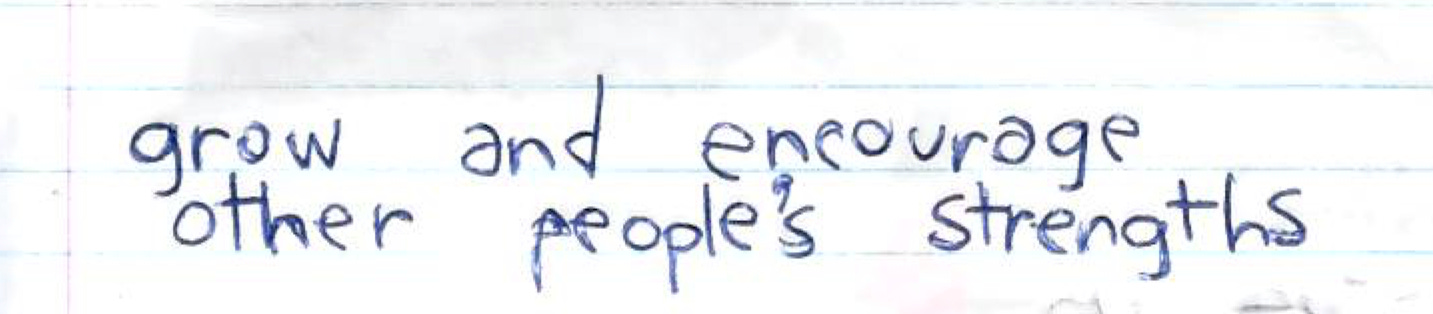 grow and encourage
other people's strengths